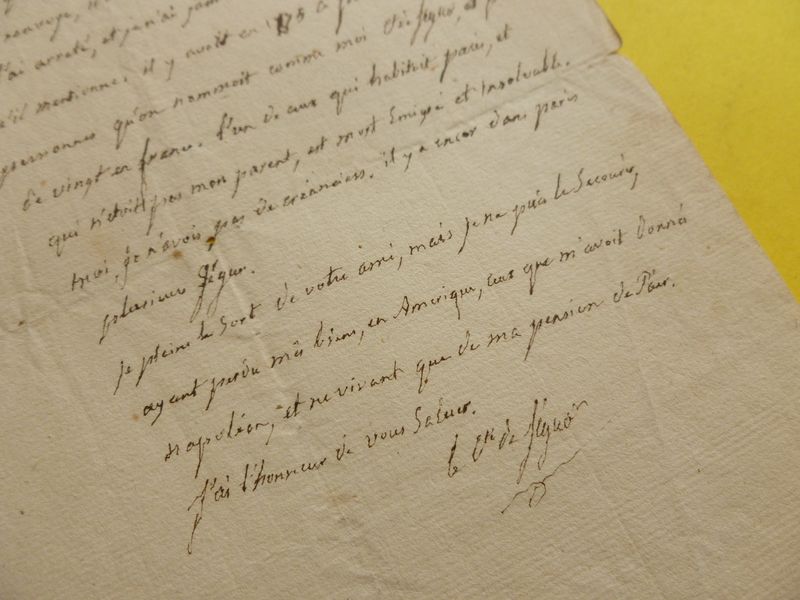 j'ai arreté, et je n'ai jam
qu'il mentionne. il y avoit en 1785 a
personnes qu'on nommoit comme moi de ségur, et
de vingt en france. l'un de ceux qui habitoit paris, et
qui n'étoit pas mon parent, est mort Emigré et Insolvable.
moi, je n'avois pas de créanciers. il y a encor dans paris
plusieurs Ségur.
je plains le Sort de votre ami, mais je ne puis le Secourir,
ayant perdu mes biens, en Amérique, ceux que m'avoit donné
napoléon, et ne vivant que de ma pension de Pair.
J'ai l'honneur de vous Saluer.
le Cte de Ségur